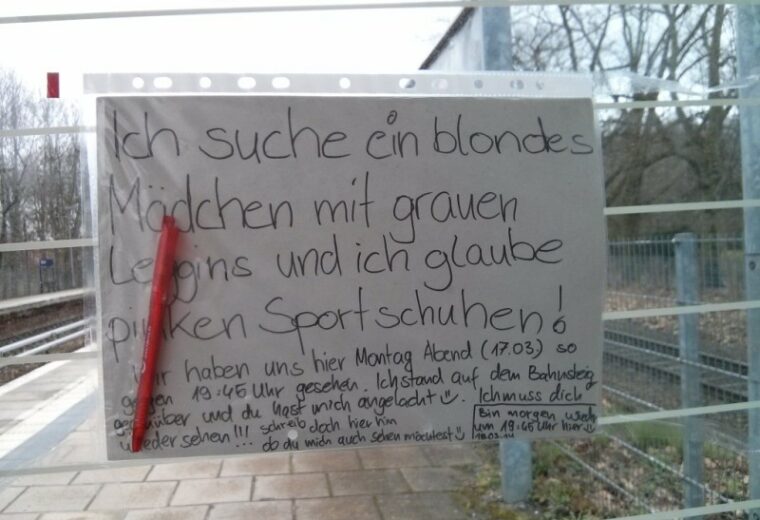 Ich suche ein blondes
Mädchen mit grauen
Leggins und ich glaube
pinken Sportschuhen!
Wir haben uns hier Montag Abend (17.03) so
gegen 19:45 Uhr gesehen. Ich stand auf dem Bahnsteig
gegenüber und du hast mich angelacht. Ich muss dich
wieder sehen!!! schreib doch hier hin
do du mich auch sehen möchtest
Bin morgen wieder
um 19:45 Uhr hier
18.03.14